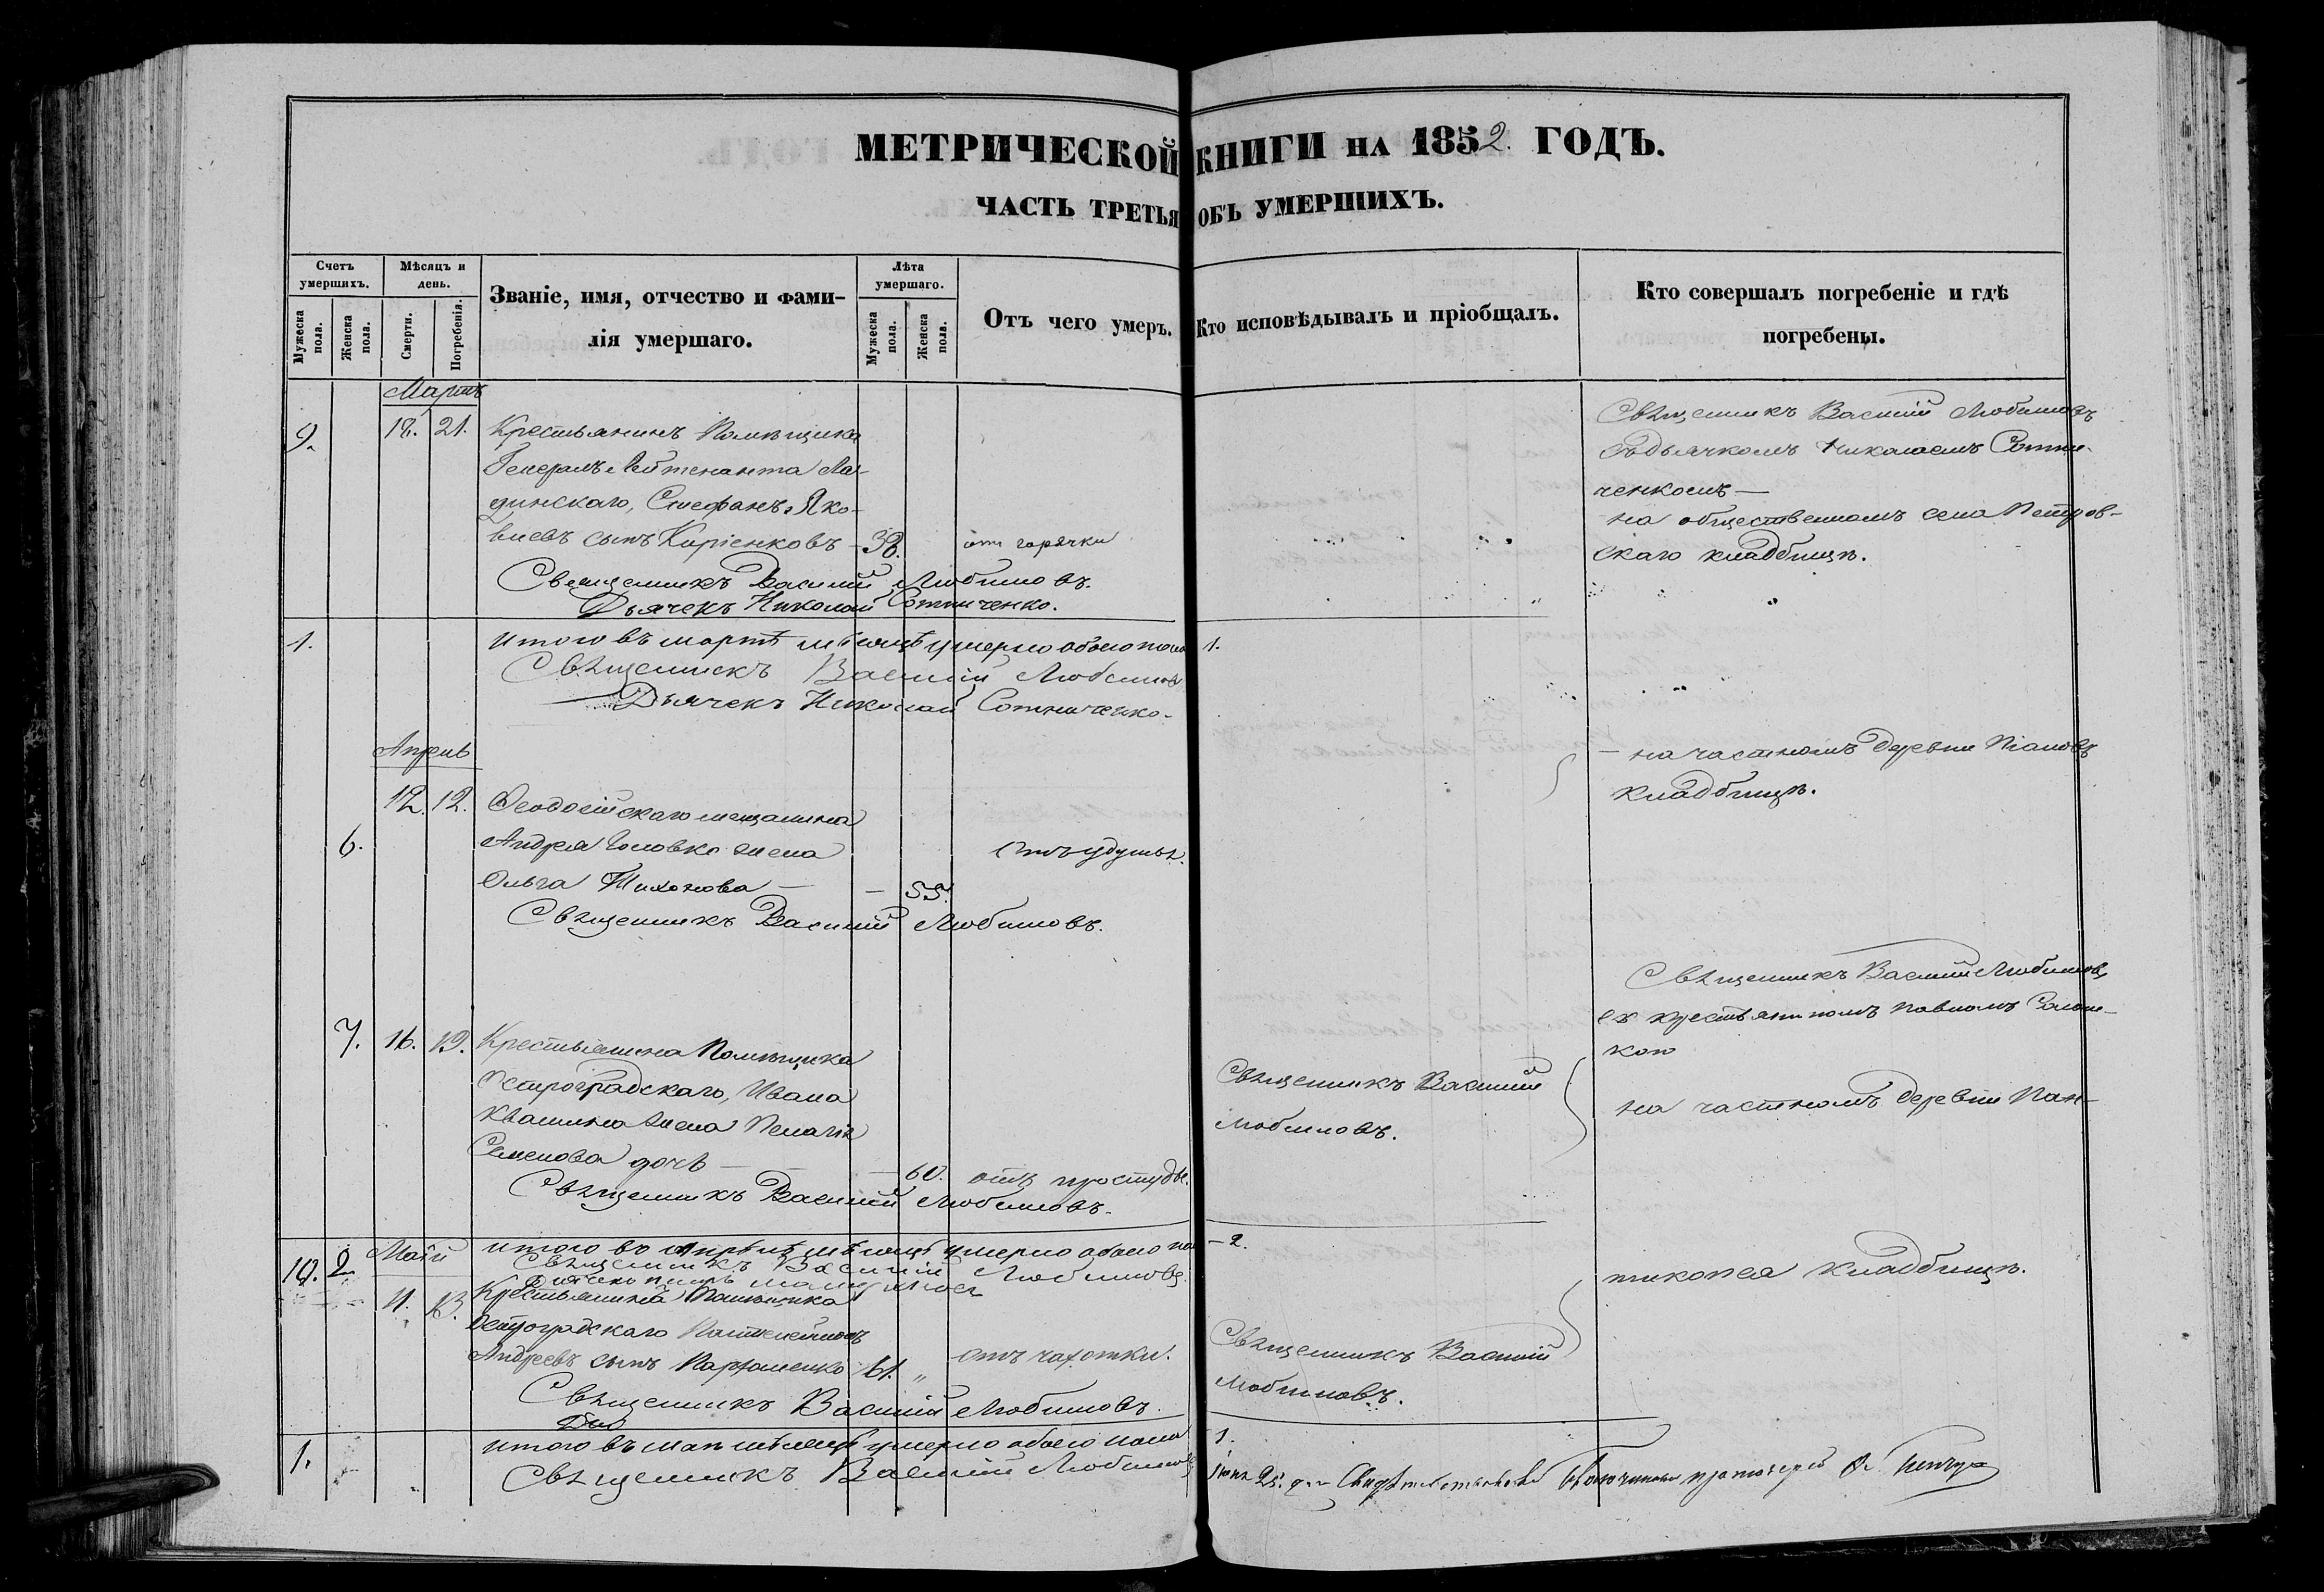 МЕТРИЧЕСКОЙ КНИГИ НА 1852. ГОДЪ.
ЧАСТЬ ТРЕТЬЯ ОБЪ УМЕРШИХЪ.
Счетъ умершихъ.
Мужеска пола.
Женска пола.
Мѣсяцъ и день.
Смерти.
Погребенія.
Званіе, имя, отчество и фами-
лія умершаго.
Лѣта умершаго.
Мужеска пола.
Женска пола.
Отъ чего умеръ.
Кто исповѣдывалъ и пріобщалъ.
Кто совершалъ погребеніе и гдѣ
погребены.
Мартъ
9. 18. 21. Крестьянинъ Помѣщика
Генералъ Лейтенанта Ла-
динскаго, Стефанъ Яко-
влевъ сынъ Каріенковъ - 38. отъ горячки
Священникъ Василій Любимовъ.
Дьячекъ Николай Сотниченко.
Священникъ Василій Любимовъ
съ дьячкомъ Николаемъ Сотни-
ченкомъ —
на общественномъ села Петров-
скаго кладбищѣ.
1. Итого въ мартѣ мѣсяцѣ умерло обоего пола 1.
Священникъ Василій Любимовъ
Дьячекъ Николай Сотниченко.
Апрель
12. 12. Ѳеодосійскаго мещанина
6. Андрея Головко жена отъ удушья.
Ольга Тихонова — — 55.
Священникъ Василій Любимовъ.
— на частномъ деревни
кладбищѣ.
7. 16. 19. Крестьянина Помѣщика
Остроградскаго, Ивана
Квашина жена Пелагія
Семенова дочь — — 60. отъ простуды.
Священникъ Василій Любимовъ.
Священникъ Василій
Любимовъ.
Священникъ Василій Любимовъ,
съ крестьяниномъ Павломъ
кою
на частномъ деревни Пан-
10. 2. Итого въ Апрѣлѣ мѣсяцѣ умерло обоего по - 2.
Священникъ Василій Любимовъ.
Май
11. 13. Крестьянина Помѣщика
Остроградскаго Пантелеймонъ
Андреевъ сынъ Пархоменко 61. „ отъ чахотки.
Священникъ Василій Любимовъ.
Священникъ Василій
Любимовъ.
тикопея кладбищѣ.
1. Итого въ маѣ мѣсяцѣ умерло обоего пола 1.
Священникъ Василій Любимовъ
Іюня 25. дня Свидѣтельствовалъ Благочинный протоіерей